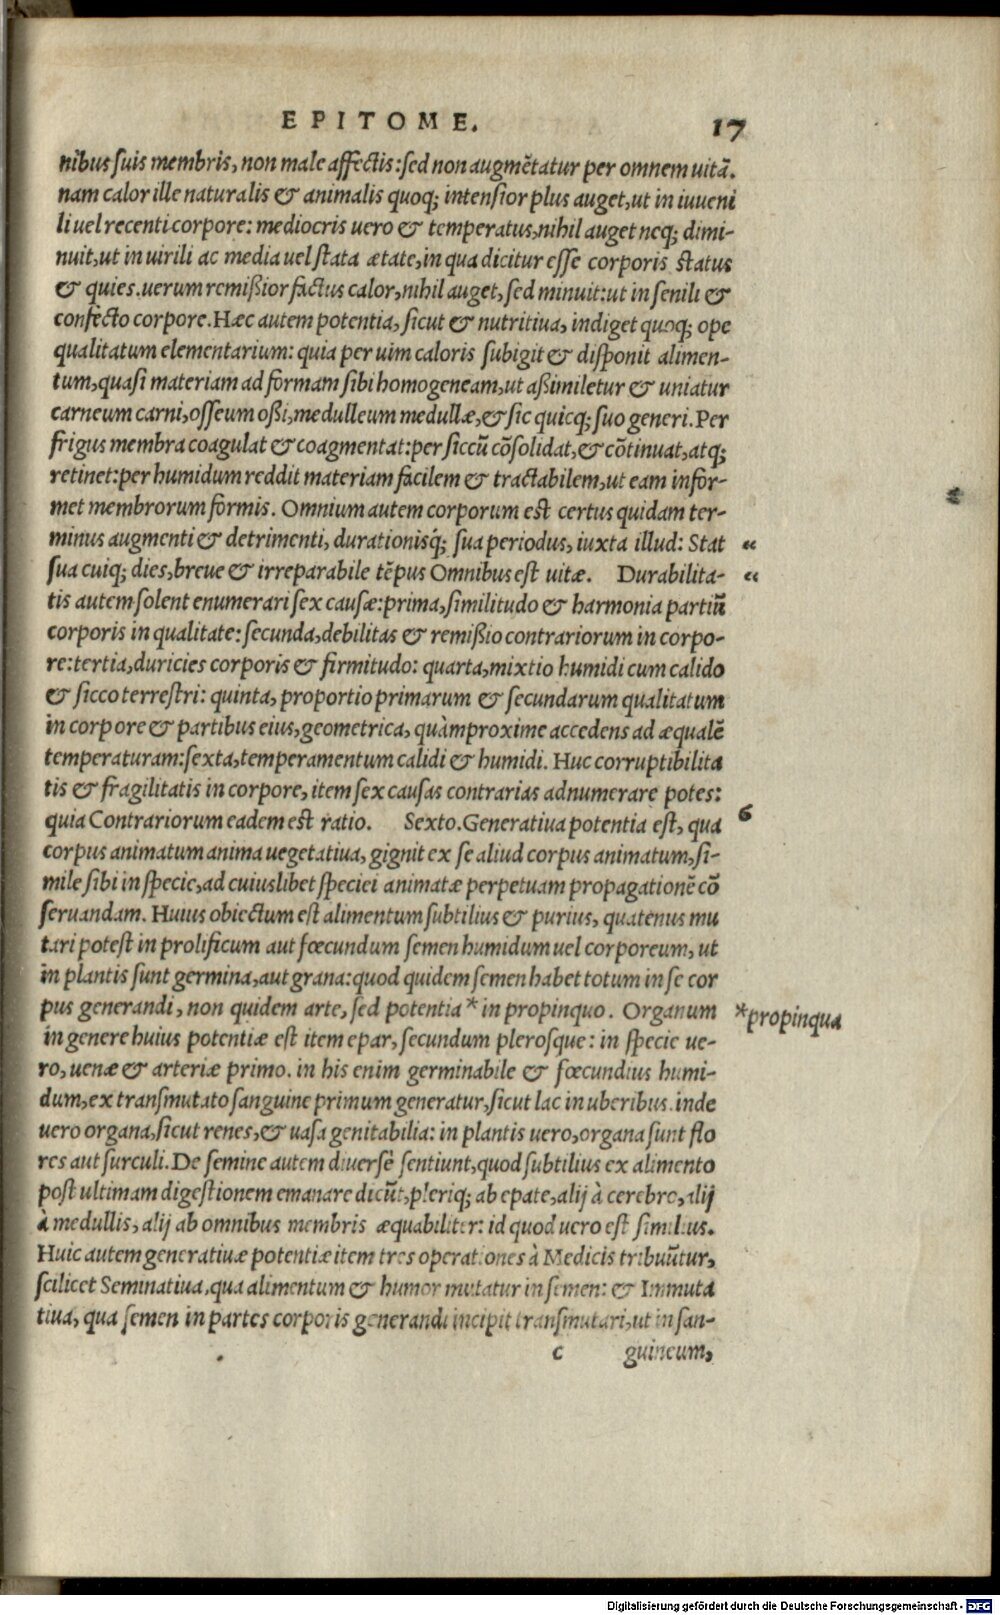 EPITOME. 17
nibus suis membris, non male affectis: sed non augmẽtatur per omnem uitã.
nam calor ille naturalis & animalis quoq; intensior plus auget, ut in iuueni
li uel recenti corpore: mediocris uero & temperatus, nihil auget neq; dimi-
nuit, ut in uirili ac media uel stata ætate, in qua dicitur esse corporis status
& quies. uerum remißior factus calor, nihil auget, sed minuit: ut in senili &
confecto corpore. Hæc autem potentia, sicut & nutritiua, indiget quoq; ope
qualitatum elementarium: quia per uim caloris subigit & disponit alimen-
tum, quasi materiam ad formam sibi homogeneam, ut aßimiletur & uniatur
carneum carni, osseum oßi, medulleum medullæ, & sic quicq; suo generi. Per
frigus membra coagulat & coagmentat: per siccũ cõsolidat, & cõtinuat, atq;
retinet: per humidum reddit materiam facilem & tractabilem, ut eam infor-
met membrorum formis. Omnium autem corporum est certus quidam ter-
minus augmenti & detrimenti, durationisq́; sua periodus, iuxta illud: Stat “
sua cuiq; dies, breue & irreparabile tẽpus Omnibus est uitæ. Durabilita- “
tis autem solent enumerari sex causæ: prima, similitudo & harmonia partiũ
corporis in qualitate: secunda, debilitas & remißio contrariorum in corpo-
re: tertia, duricies corporis & firmitudo: quarta, mixtio humidi cum calido
& sicco terrestri: quinta, proportio primarum & secundarum qualitatum
in corpore & partibus eius, geometrica, quàm proxime accedens ad æqualẽ
temperaturam: sexta, temperamentum calidi & humidi. Huc corruptibilita
tis & fragilitatis in corpore, item sex causas contrarias adnumerare potes:
quia Contrariorum eadem est ratio. Sexto. Generatiua potentia est, qua 6
corpus animatum anima uegetatiua, gignit ex se aliud corpus animatum, si-
mile sibi in specie, ad cuiuslibet speciei animatæ perpetuam propagationẽ cõ
seruandam. Huius obiectum est alimentum subtilius & purius, quatenus mu
tari potest in prolificum aut fœcundum semen humidum uel corporeum, ut
in plantis sunt germina, aut grana: quod quidem semen habet totum in se cor
pus generandi, non quidem arte, sed potentia * in propinquo. Organum *propinqua
in genere huius potentiæ est item epar, secundum plerosque: in specie ue-
ro, uenæ & arteriæ primo. in his enim germinabile & fœcundius humi-
dum, ex transmutato sanguine primum generatur, sicut lac in uberibus. inde
uero organa, sicut renes, & uasa genitabilia: in plantis uero, organa sunt flo
res aut surculi. De semine autem diuersè sentiunt, quod subtilius ex alimento
post ultimam digestionem emanare dicũt, pleriq; ab epate, alij à cerebro, alij
à medullis, alij ab omnibus membris æquabiliter: id quod uero est similius.
Huic autem generatiuæ potentiæ item tres operationes à Medicis tribuũtur,
scilicet Seminatiua, qua alimentum & humor mutatur in semen: & Immuta
tiua, qua semen in partes corporis generandi incipit transmutari, ut in san-
c guineum,
Digitalisierung gefördert durch die Deutsche Forschungsgemeinschaft - DFG